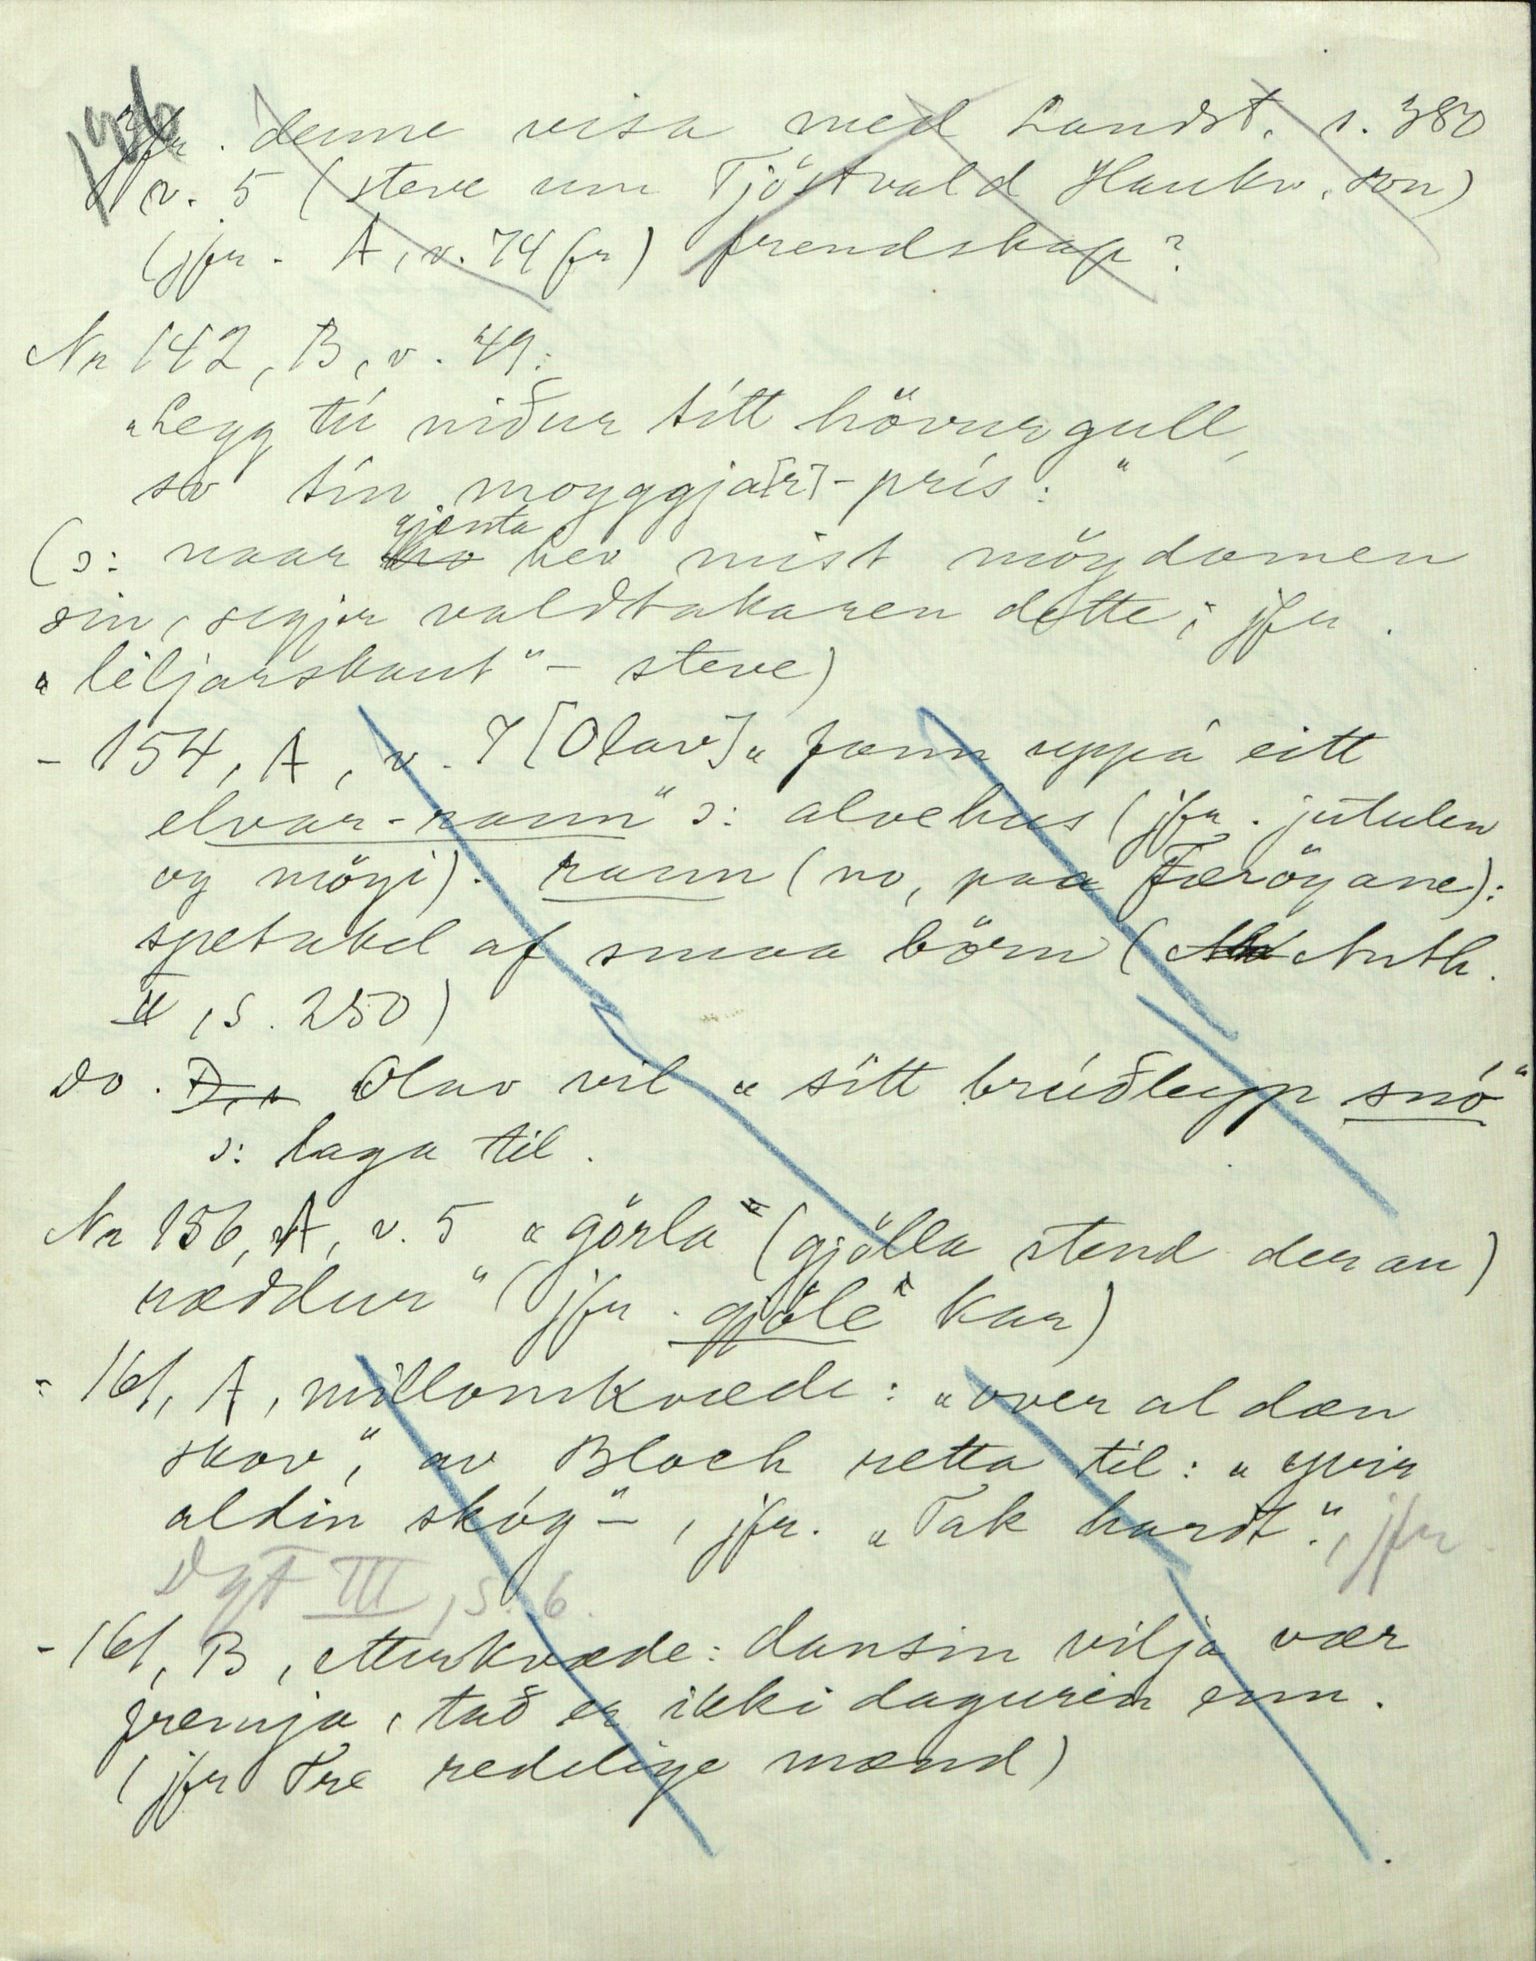 Jfr. denne visa med Landst. s. 380
v. 5 (steve um Tjöstvald Haukv. son)
(jfr. A, v. 74 fr) frendskap?
Nr 142, B, v. 49:
„Legg tú niður títt hövur gull,
so tín moyggja[r]-prís:“
gjenta
(ɔ: naar hev mist möydomen
sin, segjer valdtakaren dette; jfr.
„liljarskaut“- steve)
- 154, A, v. 7 [Olav] „fann uppá eitt
elvar-rann“ ɔ: alvehus (jfr. jutulen
og möyi). rann (no, paa Færöyane):
spetakel af smaa börn (Anth.
II, s. 250)
Do. Olav vil „sítt brúðleyp snó“
ɔ: laga til.
Nr 156, A, v. 5 „görla“ (gjölla stend der au)
ræddur“ (jfr. „gjöle“ kar)
- 161, A, millomkvæde: „over al dæn
skov“, av Bloch retta til: „yvir
aldin skóg“-, jfr. „Tak hardt“, jfr.
DgF III, s. 6.
- 161, B, etterkvæde: dansin vilja vær
fremja, tað er ikki dagurin enn.
(jfr Tre redelige mænd)